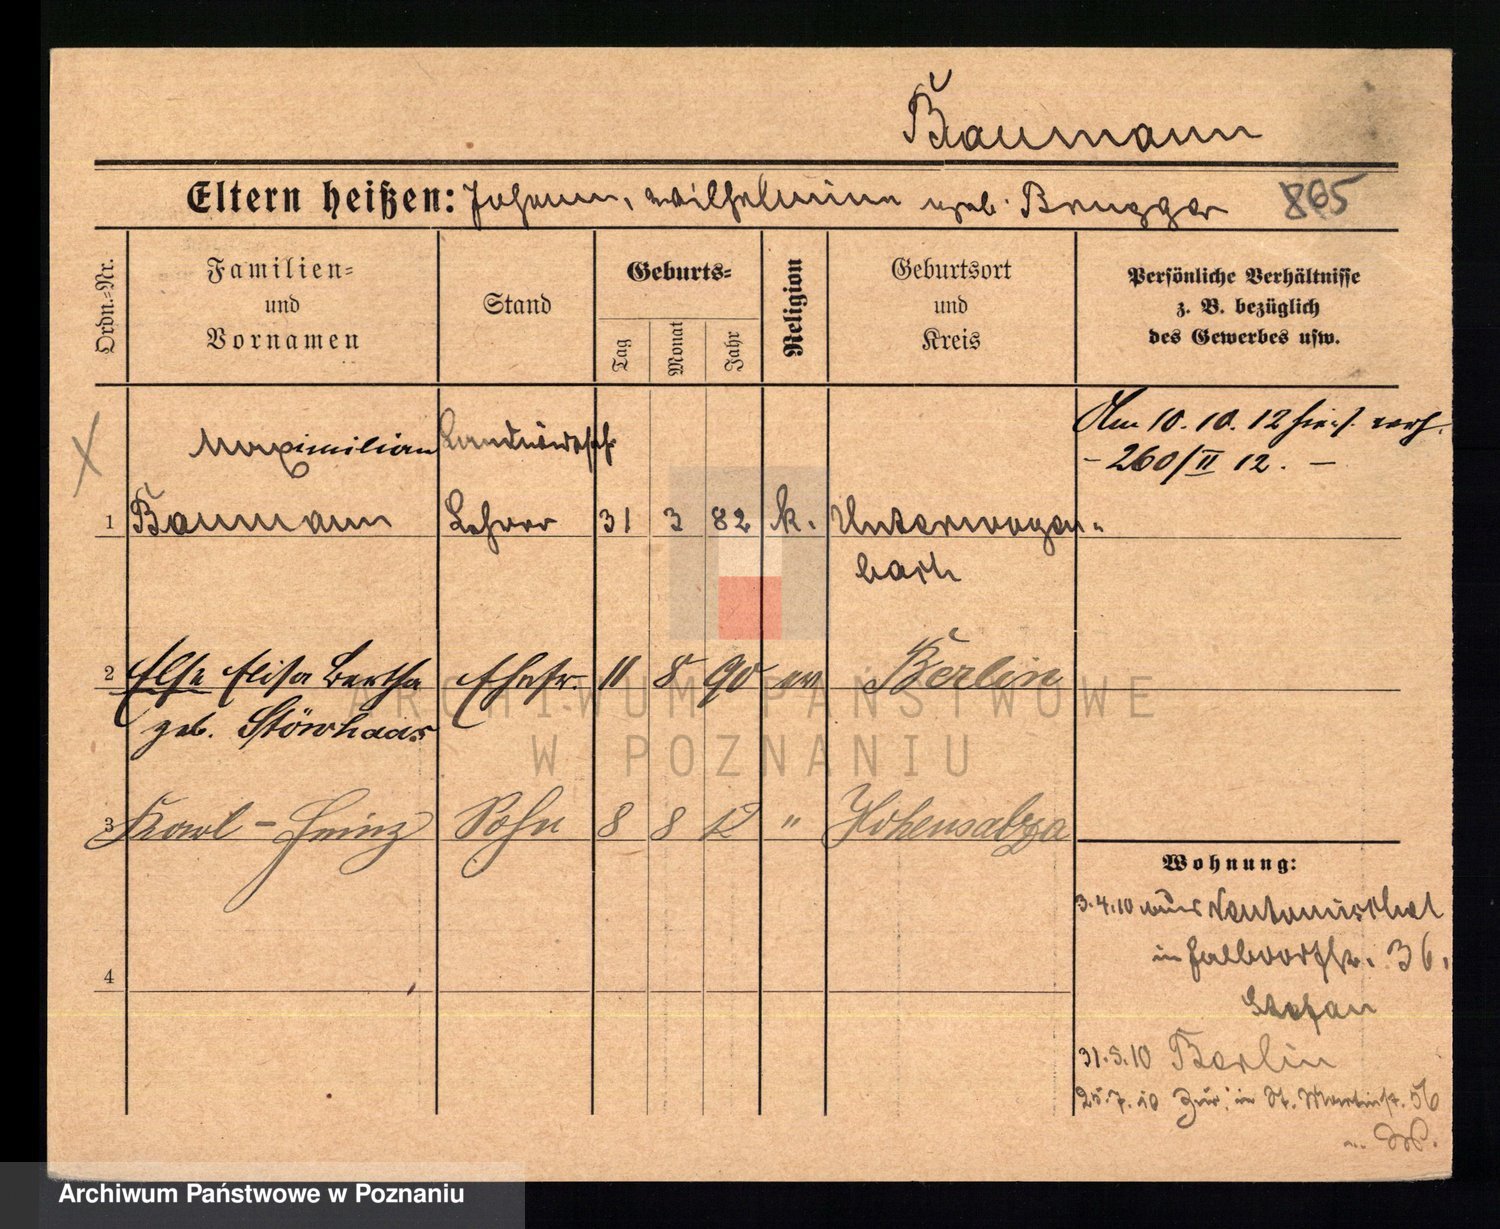 Baumann
Eltern heißen: Johann, Wilhelmine geb. Brugger 865
Ordn.=Nr.
Familien=
und
Vornamen
Stand
Geburts=
Tag
Monat
Jahr
Religion
Geburtsort
und
Kreis
Persönliche Verhältnisse
z. B. bezüglich
des Gewerbes usw.
Maximilian Landwirtsch. Am 10. 10. 12 hies. verh.
- 260/II 12. -
1 Baumann Lehrer 31 3 82 k. Unterwagen=
bach
2 Else Elisa Bertha Ehefr. 11 8 90 ev Berlin
geb. Störrhaas
3 Karl-Heinz Sohn 8 8 12 " Hohensalza
Wohnung:
3.4.10 aus
in 36.
4
Stefan
31.5.10 Berlin
25.7.10 Zur. in St. Martinstr. 56
ARCHIWUM PAŃSTWOWE
W POZNANIU
Archiwum Państwowe w Poznaniu